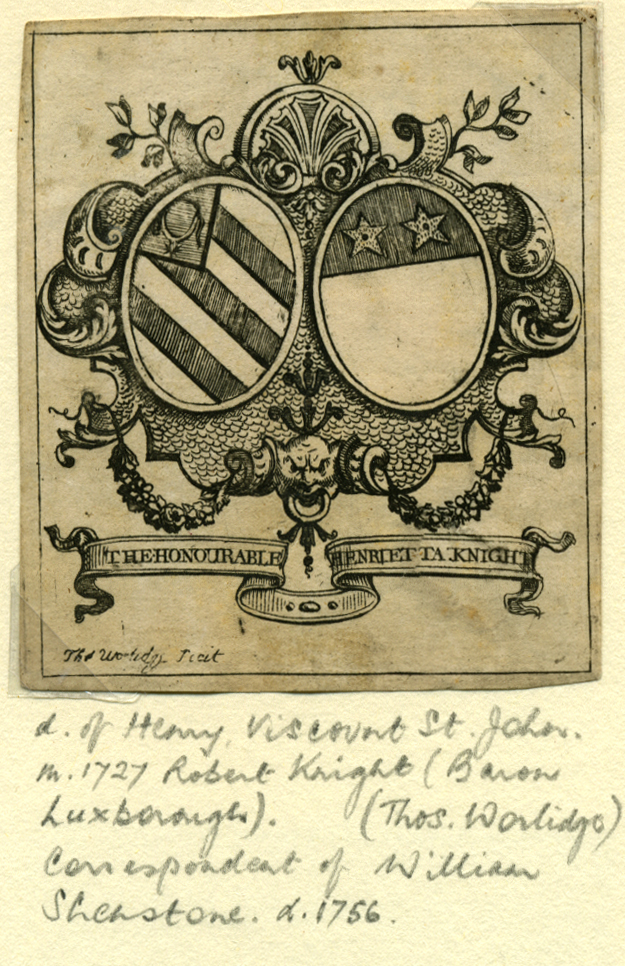 THE·HONOURABLE HENRIETTA·KNIGHT
Tho Worlidge Fecit
d. of Henry, Viscount St. John.
m. 1727 Robert Knight (Baron
Luxborough). (Thos. Worlidge)
Correspondent of William
Shenstone. d. 1756.